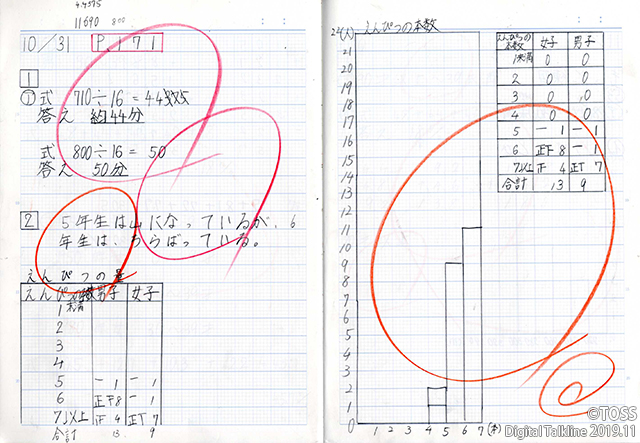 11690 800
10/31 P.171
1
① 式 710÷16=44.375
答え 約44分
式 800÷16=50
答え 50分
2 5年生は山になっているが、6
年生は、ちらばっている。
えんぴつの量
男子 女子
1未満
2
3
4
5 一 1 一 1
6 正下8 一 1
7以上 正 4 正丁 7
合計 13 9
えんぴつの本数
(人)
21
20
19
18
17
16
15
14
13
12
11
10
9
8
7
6
5
4
3
2
1
0 1 2 3 4 5 6 7 (本)
えんぴつの本数 女子 男子
1未満 0 0
2 0 0
3 0 0
4 0 0
5 一 1 一 1
6 正下8 一 1
7以上 正 4 正丁 7
合計 13 9
©TOSS
Digital Talkline 2019.11